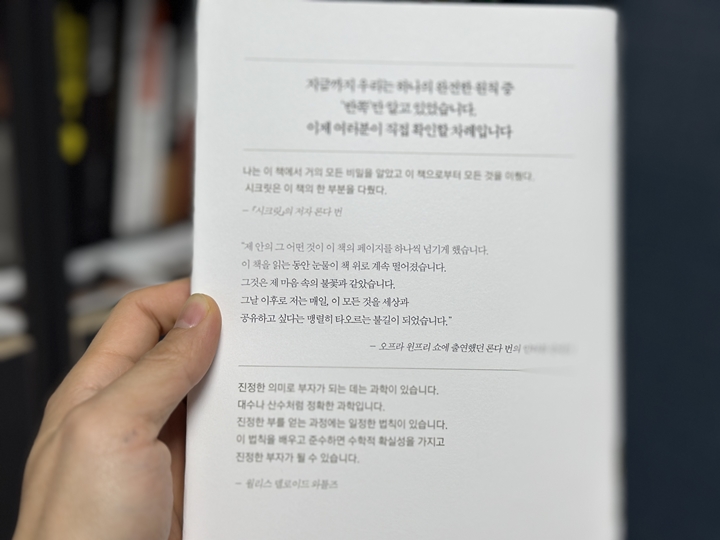 지금까지 우리는 하나의 완전한 원칙 중
'반쪽'만 알고 있었습니다.
이제 여러분이 직접 확인할 차례입니다
나는 이 책에서 거의 모든 비밀을 알았고 이 책으로부터 모든 것을 이뤘다.
시크릿은 이 책의 한 부분을 다뤘다.
– 『시크릿』의 저자 론다 번
"제 안의 그 어떤 것이 이 책의 페이지를 하나씩 넘기게 했습니다.
이 책을 읽는 동안 눈물이 책 위로 계속 떨어졌습니다.
그것은 제 마음 속의 불꽃과 같았습니다.
그날 이후로 저는 매일, 이 모든 것을 세상과
공유하고 싶다는 맹렬히 타오르는 불길이 되었습니다."
– 오프라 윈프리 쇼에 출연했던 론다 번의
진정한 의미로 부자가 되는 데는 과학이 있습니다.
대수나 산수처럼 정확한 과학입니다.
진정한 부를 얻는 과정에는 일정한 법칙이 있습니다.
이 법칙을 배우고 준수하면 수학적 확실성을 가지고
진정한 부자가 될 수 있습니다.
– 월리스 델로이드 와틀즈